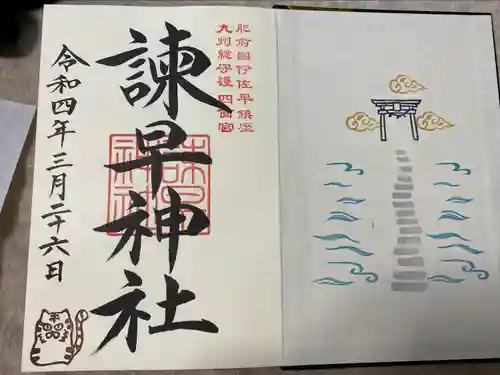 肥前国伊佐早鎮座
九州総守護 四面宮
諫早神社
令和四年三月二十六日